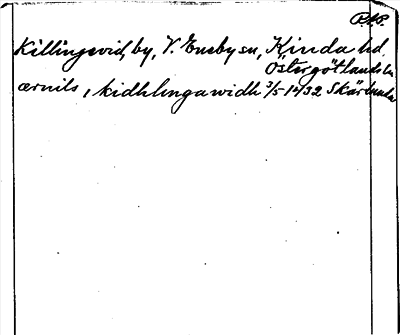 P.A.P.
Killingevid, by, V. Eneby sn, Kinda hd,
Östergötlands län
ærnils, kidhlingawidh 3/5 1432 Skärlunda